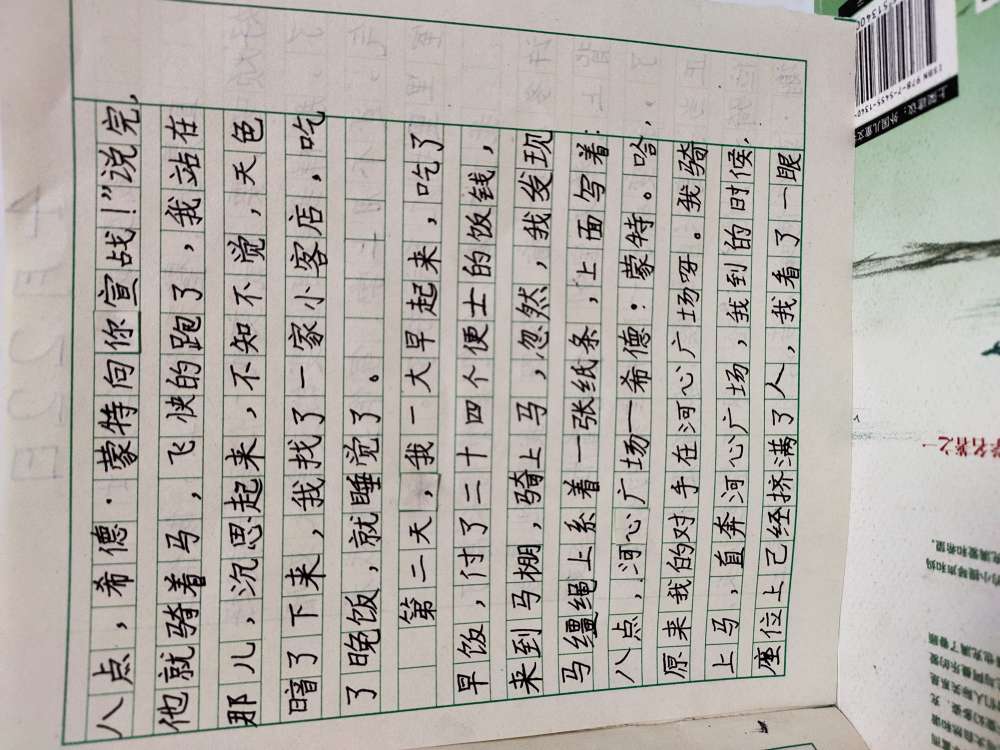 八点，希德·蒙特向你宣战！”说完，
他就骑着马，飞快的跑了，我站在
那儿，沉思起来，不知不觉，天色
暗了下来，我找了一家小客店，吃
了晚饭，就睡觉了。
第二天，我一大早起来，吃了
早饭，付了二十四个便士的饭钱，
来到马棚，骑上马，忽然，我发现
马缰绳上系着一张纸条，上面写着：
八点，河心广场一希德：蒙特。哈，
原来我的对手在河心广场呀。我骑
上马，直奔河心广场，我到的时候，
座位上已经挤满了人，我看了一眼
ISBN 978-7-5455-1340-
外国儿童文
学名著之一